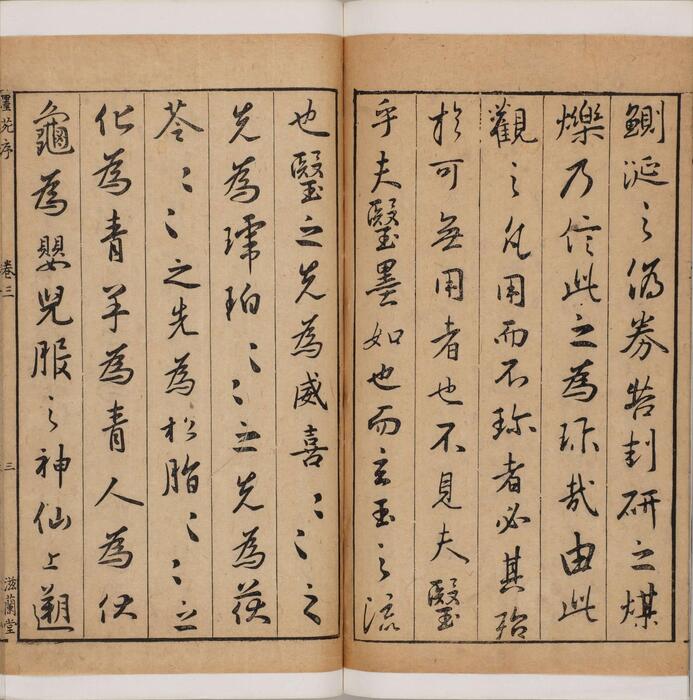 鰂涎之偽券封研之煤
爍乃信此之為珎哉由此
觀之凡用而不珎者必其殆
於可無用者也不見夫瑿
乎夫瑿墨如也而玄玉之流
也瑿之先為威喜〻〻之
先為琥珀〻〻之先為茯
苓〻〻之先為松脂〻〻之
化為青羊為青人為伏
龜為嬰兒服之神仙上遡
墨苑序 卷三 三 滋蘭堂